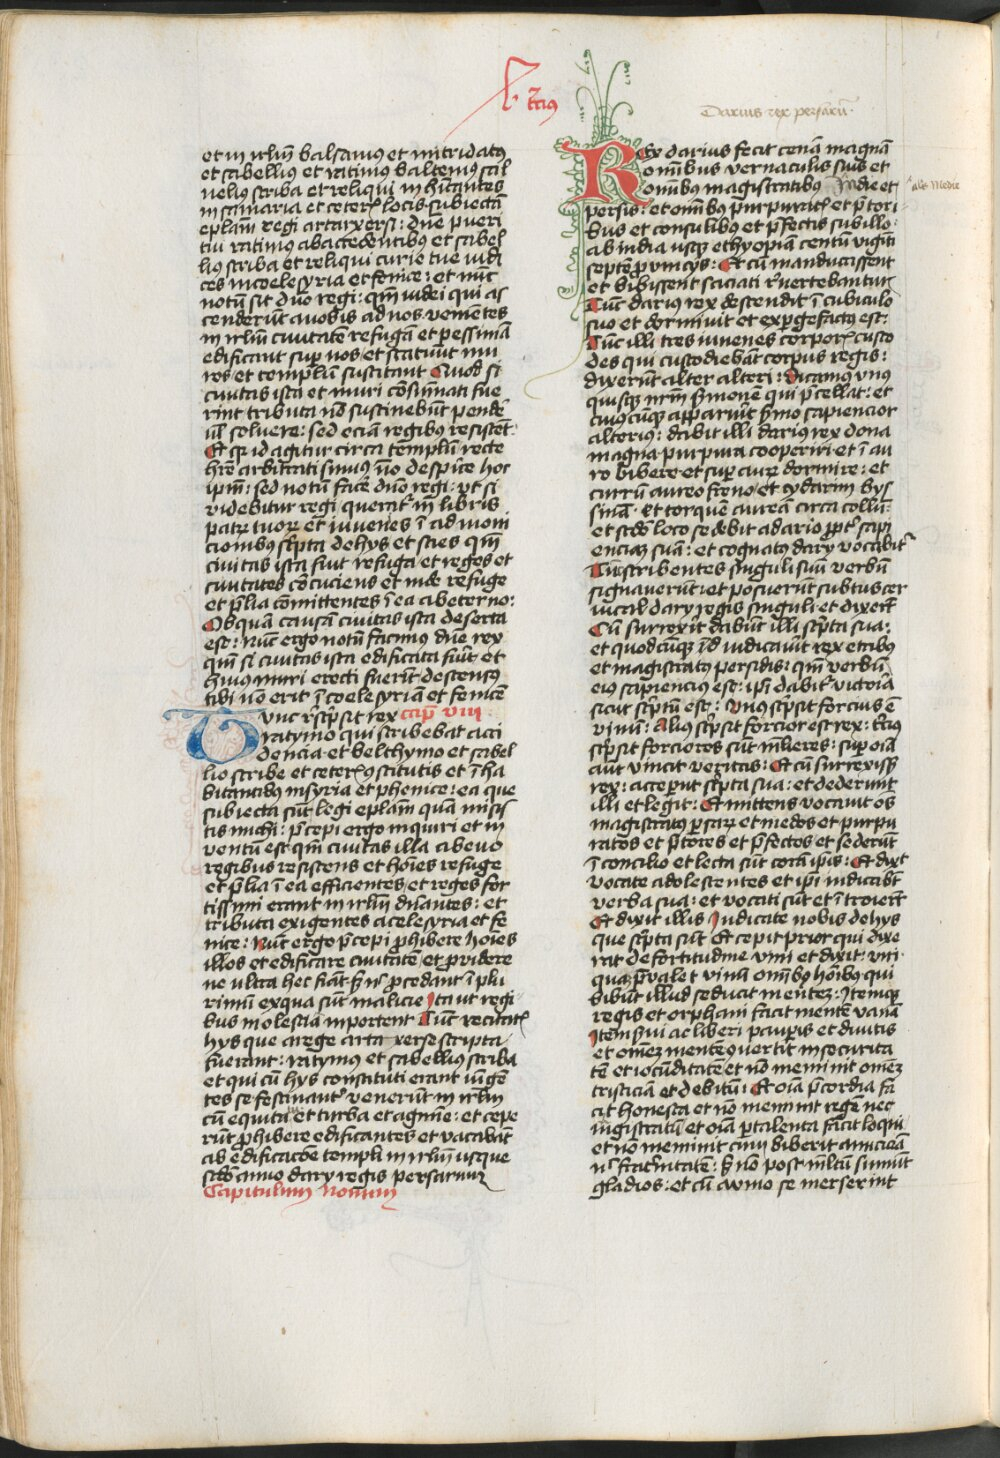 L. ter̄cius
Darius rex persarū
et in irl̄m balsamus et mitridatus
et sabellius et ratimus baltemus sal
nelius scriba et reliqui inhītantes
in samaria et ceteris locis subiectā
epl̄am regi artarxersi : dn̄e pueri
tui ratimus ab accedentibus et sabel
lius scriba et reliqui curie tue iudi
ces in coelesyria et fenice : et nunc
notū sit dn̄o regi : qm̄ iudei qui as
cenderūt a vobis ad nos venientes
in irl̄m ciuitatē refugā et pessimā
edificant sup nos et statuūt mu
ros et templū suscitant Quod si
ciuitas ista et muri cōsum̄ati fue
rint tributa nō sustinebūt pende'
ul̄ soluere : sed eciā regibus resistēt
Et qr id agitur circa templū recte
hr̄e arbitrati sumus nō despice hoc
ipm̄ : sed notū face' dn̄o regi : vt si
videbitur regi querat' in libris
patrū tuorū et inuenies ī admoni
cionibus scr̄pta de hys et scies qm̄
ciuitas ista fuit refuga et reges et
ciuitates cōcuciens et inde refuge
et p̄lia cōmittentes ī ea ab eterno :
Ob quam causam ciuitas ista deserta
est : Nūc ergo notū facimus dn̄e rex
qm̄ si ciuitas ista edificata fuit et
huius muri erecti fuerīt descensus
tibi nō erit ī coelesyriam et fenicē
Tunc rescr̄psit rex cap̄ viii
ratymo qui scribebat acci
dencia et belthymo et sabel
lio scribe et ceteris ɔstitutis et īha
bitantibus in syria et phenice : ea que
subiecta sūt legi epl̄am quā misis
tis michi : p̄cepi ergo inquiri et in
ventū est qm̄ ciuitas illa ab euo
regibus resistens et hoīes refuge
et p̄lia ī ea efficientes et reges for
tissimi erant in irl̄m dn̄antes : et
tributa exigentes a celesyria et fe
nice : Nūc ergo p̄cepi ꝓhibere hoīes
illos et edificare ciuitatē et ꝓvidere
ne ultra hec fiāt ne procedant ī plu
rimū ex qua sūt malicie Ita ut regi
bus molestia inportent Tūc recitatis
hys que a rege artaxerse scripta
fuerant : ratymus et sabellius scriba
et qui cū hys constituti erant iūgē
tes se festinant' venerūt in irl̄m
cū equitatu et turba et agmine : et cepe
rūt ꝓhibere edificantes et vacabāt
ab edificacōe templi in irl̄m usque
scd̄o anno dary regis persarum
Capitulum Nonum
Rex darius fecit cenā magnā
omībus vernaculis suis et
omībus magistratibus Medie et
persis : et omībus purpuratis et p̄tori
bus et consulibus et p̄fectis sub illo :
ab india usque ethyopiam centū viginti
septē prouincys : Et cū manducassent
et bibissent saciati reuertebantur
Tūc darius rex descendit ī cubiculo
suo et dormiuit et expergefactus est :
Tūc illi tres iuuenes corporis custo
des qui custodiebāt corpus regis :
dixerūt alter alteri : Dicamus vnus
quisque nr̄m sermonē qui p̄cellat : et
cuiuscūque apparuīt sermo sapiencior
alterius : dabit illi darius rex dona
magna purpura cooperiri et ī au
ro bibere et super aurū dormire : et
currū aureo freno et cydarim bys
sinā . et torquē aureā circa collū :
et scd̄o loco sedebit a dario propt' sapi
enciam suā : et cognatus dary vocabit'
Tūc scribentes singuli suū verbū
signauerūt : et posuerūt subtus cer
uical dary regis singuli et dixerūt
Cū surrexit dabūt illi scr̄pta sua :
et quodcūque id iudicauit rex et tribus
et magistratus persidis : qm̄ verbū
eius sapiencius est : ipi dabit' victoria
sicut scr̄ptū est : Vnus scr̄psit forcius ē
vinū : Alius scr̄psit forcior est rex : tercius
scr̄psit forciores sūt mulieres : super oīa
aūt vincit veritas : Et cū surrexisset
rex : acceperūt scr̄pta sua : et dederunt
illi et legit : Et mittens vocauit oēs
magistratus persarum et medos et purpu
ratos et p̄tores et p̄fectos et sederūt
ī concilio et lecta sūt corā ipis : Et dixit
vocate adolescentes et ipi indicabūt
verba sua : et vocati sūt et ītroierūt
Et dixit illis Indicate nobis de hys
que scr̄pta sūt Et cepit prior qui dixe
rat de fortitudine vini et dixit : viri
quam preualet vinū omībus hoībus qui
bibūt illud seducit mentem : Itemque
regis et orphani facit mentē vanā
Item serui ac liberi pauperis et diuitis
et omēm mentē ɔuertit in securita
tē et iocūditatē et nō meminit omēm
tristiciā et debitum : Et oīa p̄cordia fa
cit honesta et nō meminit regē nec
magistratū et oīa per talenta facit loqui
et nō meminit cum biberit amiciciā
nec frat'nitatē : et nō post multū sumūt
gladios : et cū a vino se merserint
al's Medie